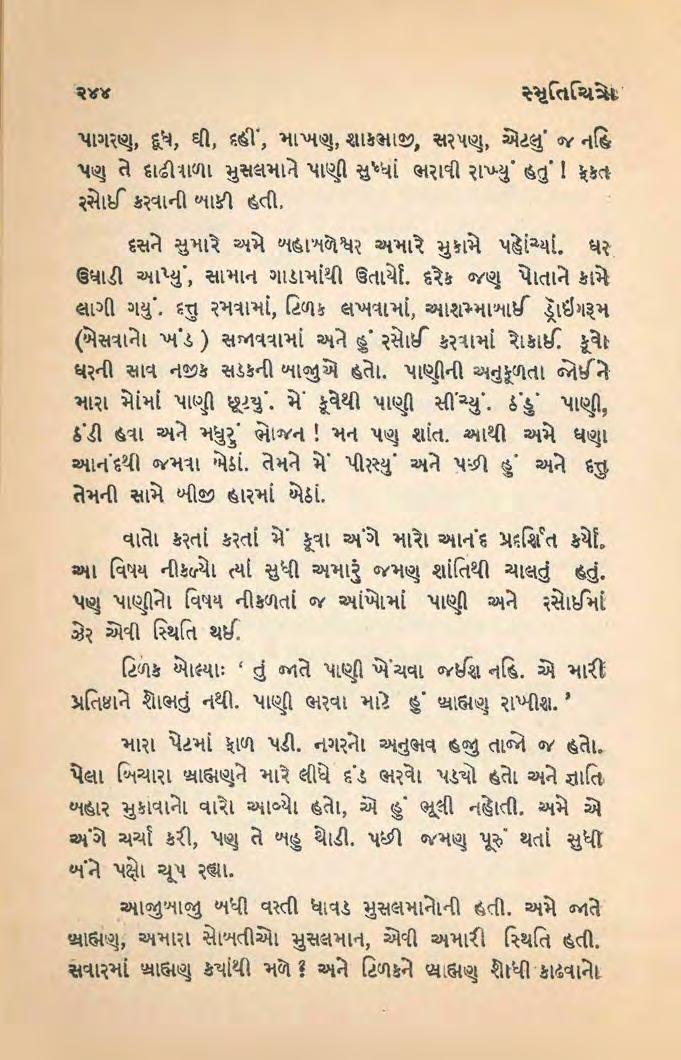 ૨૪૪ સ્મૃતિચિત્રો
પાગરણ, દૂધ, ઘી, દહીં, માખણ, શાકભાજી, સરપણ, એટલું જ નહિ
પણ તે દાઢીવાળા મુસલમાને પાણી સુધ્ધાં ભરાવી રાખ્યું હતું ! ફકત
રસોઈ કરવાની બાકી હતી.
દસને સુમારે અમે મહાબળેશ્વર અમારે મુકામે પહોંચ્યાં. ઘર
ઉઘાડી આપ્યું, સામાન ગાડામાંથી ઉતાર્યો. દરેક જણ પોતાને કામે
લાગી ગયું. દત્તુ રમવામાં, ટિળક લખવામાં, આશમ્માબાઈ ડ્રૉઇંગરૂમ
(બેસવાનો ખંડ ) સજાવવામાં અને હું રસોઈ કરવામાં રોકાઈ. કૂવો
ઘરની સાવ નજીક સડકની બાજુએ હતો. પાણીની અનુકૂળતા જોઈને
મારા મોંમાં પાણી છૂટ્યું. મેં કૂવેથી પાણી સીંચ્યું. ઠંડું પાણી,
ઠંડી હવા અને મધુરું ભોજન ! મન પણ શાંત. આથી અમે ઘણા
આનંદથી જમવા બેઠાં. તેમને મેં પીરસ્યું અને પછી હું અને દત્તુ
તેમની સામે બીજી હારમાં બેઠાં.
વાતો કરતાં કરતાં મેં કૂવા અંગે મારો આનંદ પ્રદર્શિત કર્યો.
આ વિષય નીકળ્યો ત્યાં સુધી અમારું જમણ શાંતિથી ચાલતું હતું.
પણ પાણીનો વિષય નીકળતાં જ આંખોમાં પાણી અને રસોઈમાં
ઝેર એવી સ્થિતિ થઈ.
ટિળક બોલ્યાઃ ‘ તું જાતે પાણી ખેંચવા જઈશ નહિ. એ મારી
પ્રતિષ્ઠાને શોભતું નથી. પાણી ભરવા માટે હું બ્રાહ્મણ રાખીશ. ’
મારા પેટમાં ફાળ પડી. નગરનો અનુભવ હજુ તાજો જ હતો.
પેલા બિચારા બ્રાહ્મણને મારે લીધે દંડ ભરવો પડયો હતો અને જ્ઞાતિ
બહાર મુકાવાનો વારો આવ્યો હતો, એ હું ભૂલી નહોતી. અમે એ
અંગે ચર્ચા કરી, પણ તે બહુ થોડી. પછી જમણ પૂરું થતાં સુધી
બંને પક્ષો ચૂપ રહ્યા.
આજુબાજુ બધી વસ્તી ધાવડ મુસલમાનોની હતી. અમે જાતે
બ્રાહ્મણ, અમારા સોબતીઓ મુસલમાન, એવી અમારી સ્થિતિ હતી.
સવારમાં બ્રાહ્મણ કયાંથી મળે ? અને ટિળકને બ્રાહ્મણ શોધી કાઢવાનો